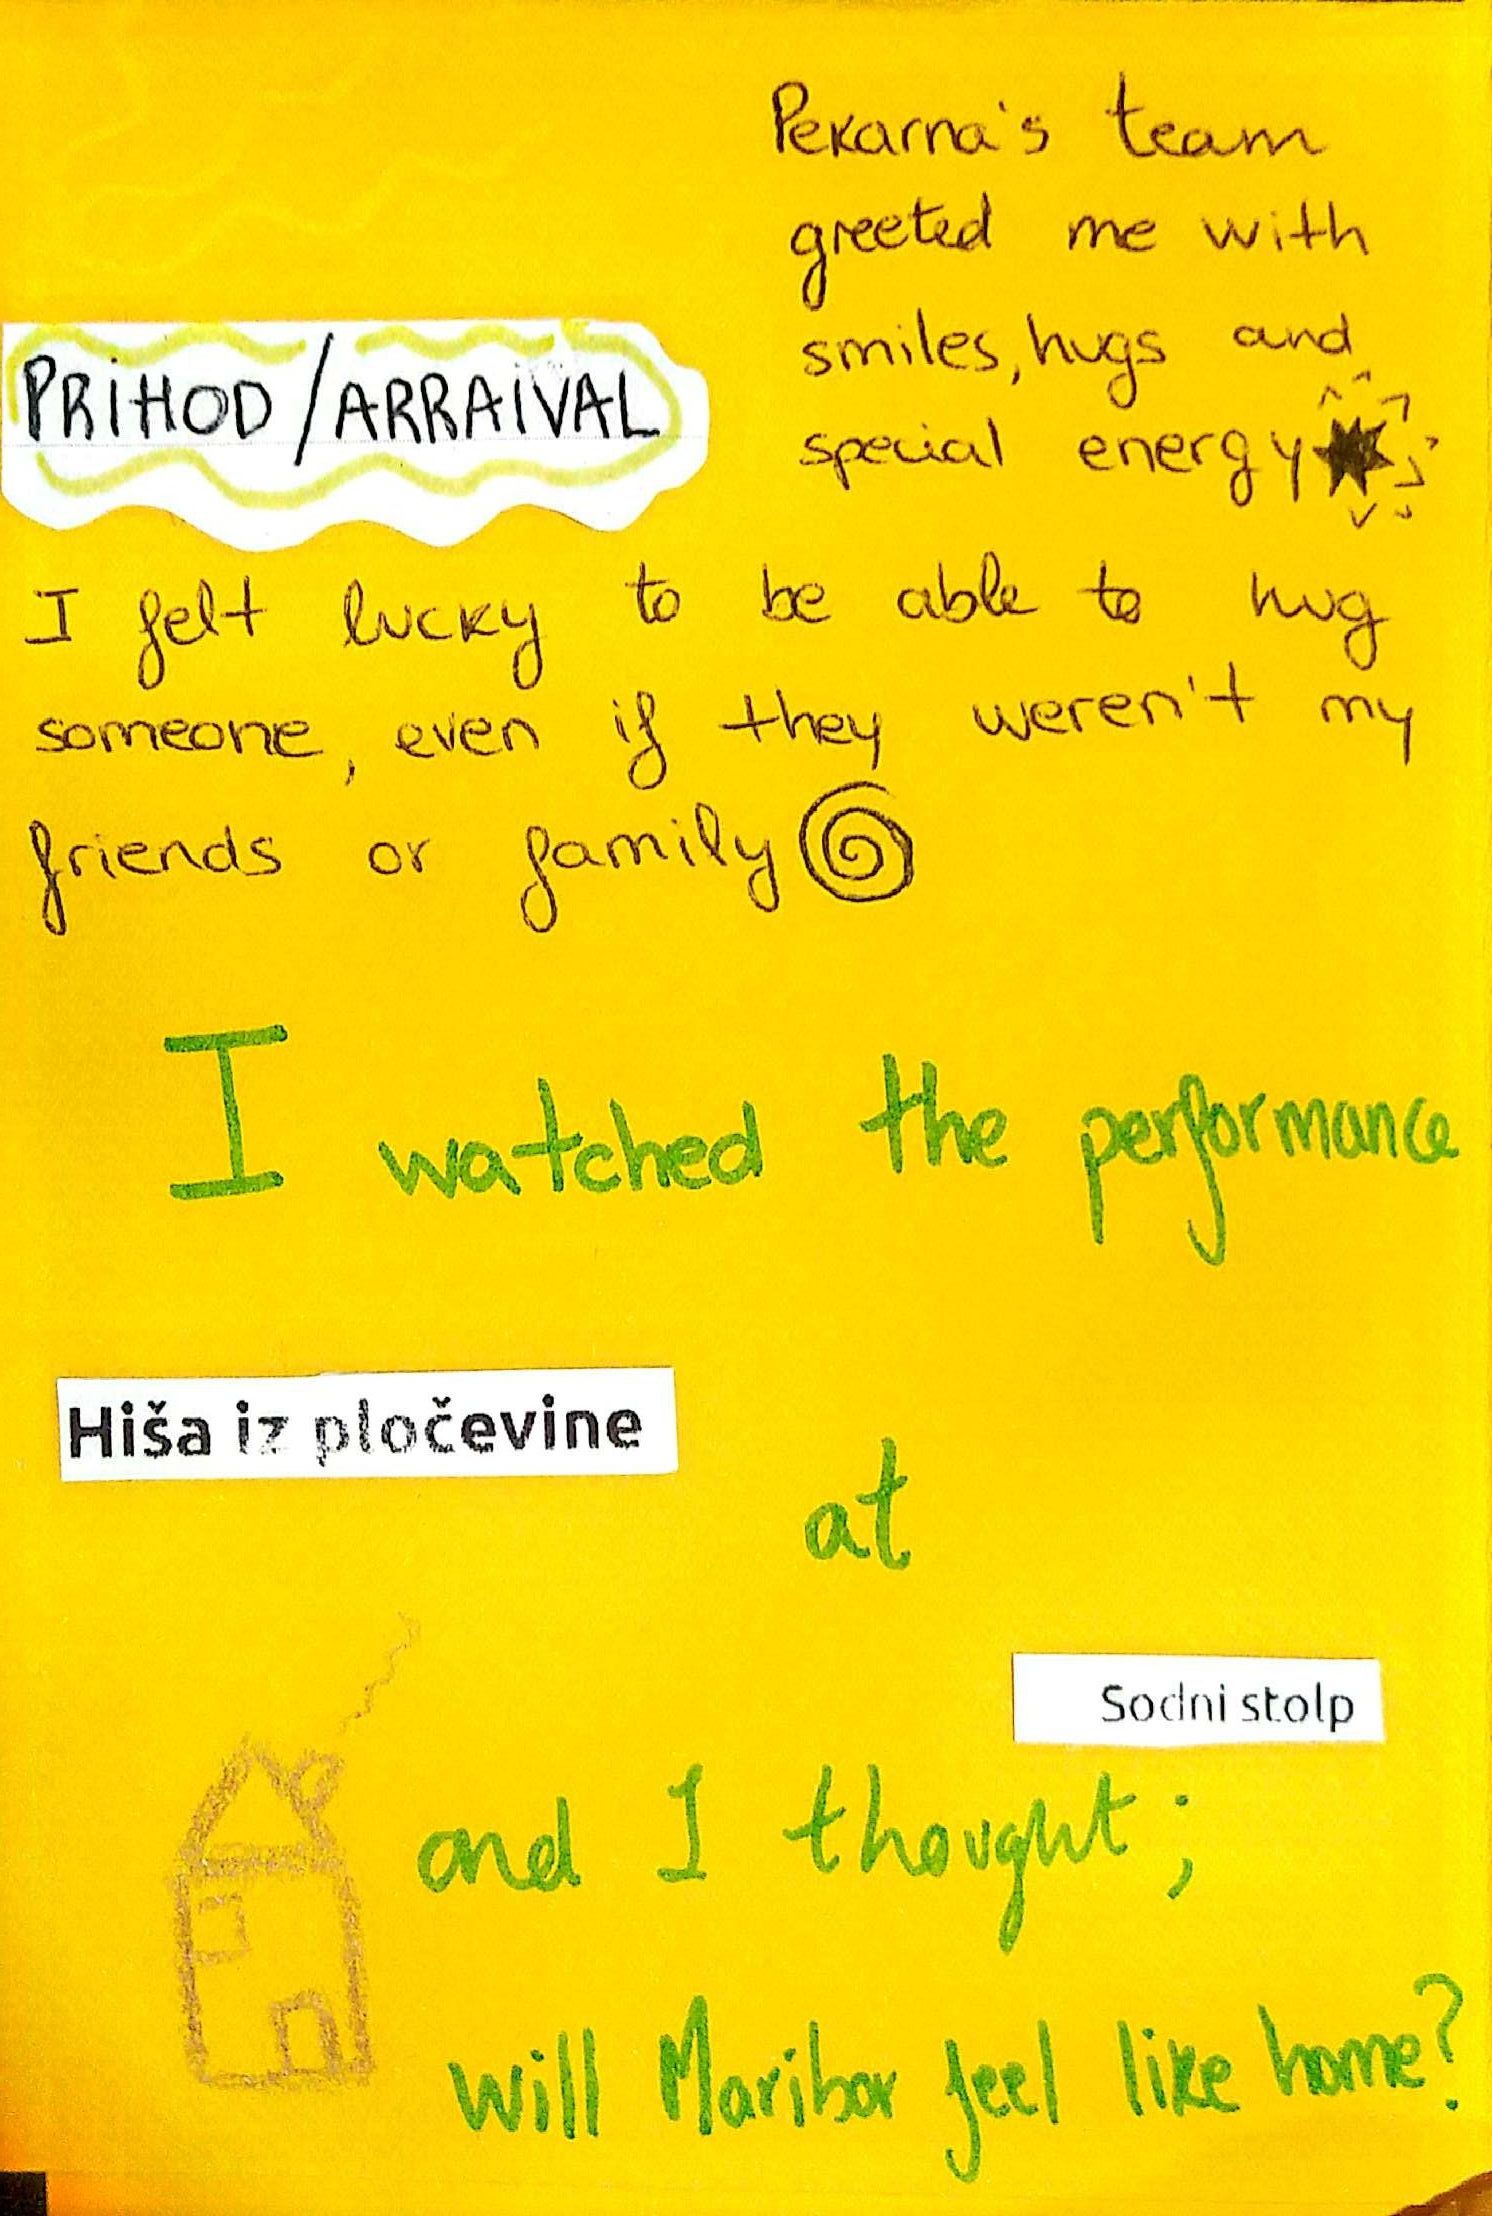 Pekarna's team
greeted me with
smiles, hugs and
special energy
PRIHOD/ARRAIVAL
I felt lucky to be able to hug
someone, even if they weren't my
friends or family
I watched the performance
Hiša iz pločevine
at
Sodni stolp
and I thought;
will Maribor feel like home?